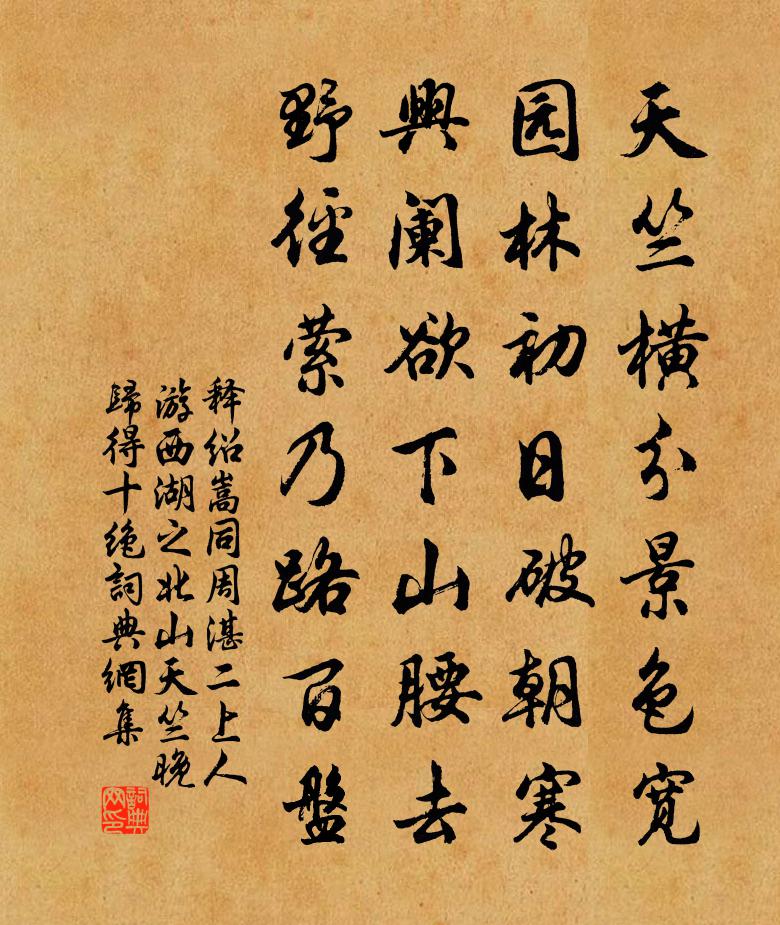 天竺横分景色寛
园林初日破朝寒
興阑欲下山腰去
野径萦乃路百盤
释绍嵩同周湛二上人
游西湖之北山天竺晚
歸得十绝詞典網集
詞典网印